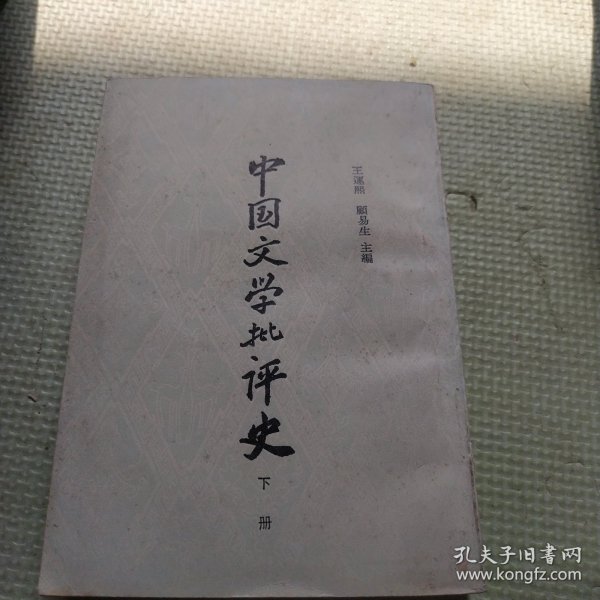 王運熙 顧易生 主編
中国文学批评史
下册
孔夫子旧书网
www.kongfz.com